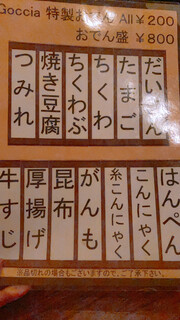 Goccia 特製おでん All￥200
おでん盛 ￥800
だいこん
たまご
ちくわ
ちくわぶ
焼き豆腐
つみれ
はんぺん
こんにゃく
糸こんにゃく
がんも
昆布
厚揚げ
牛すじ
※品切れの場合もございますので、ご了承下さい。